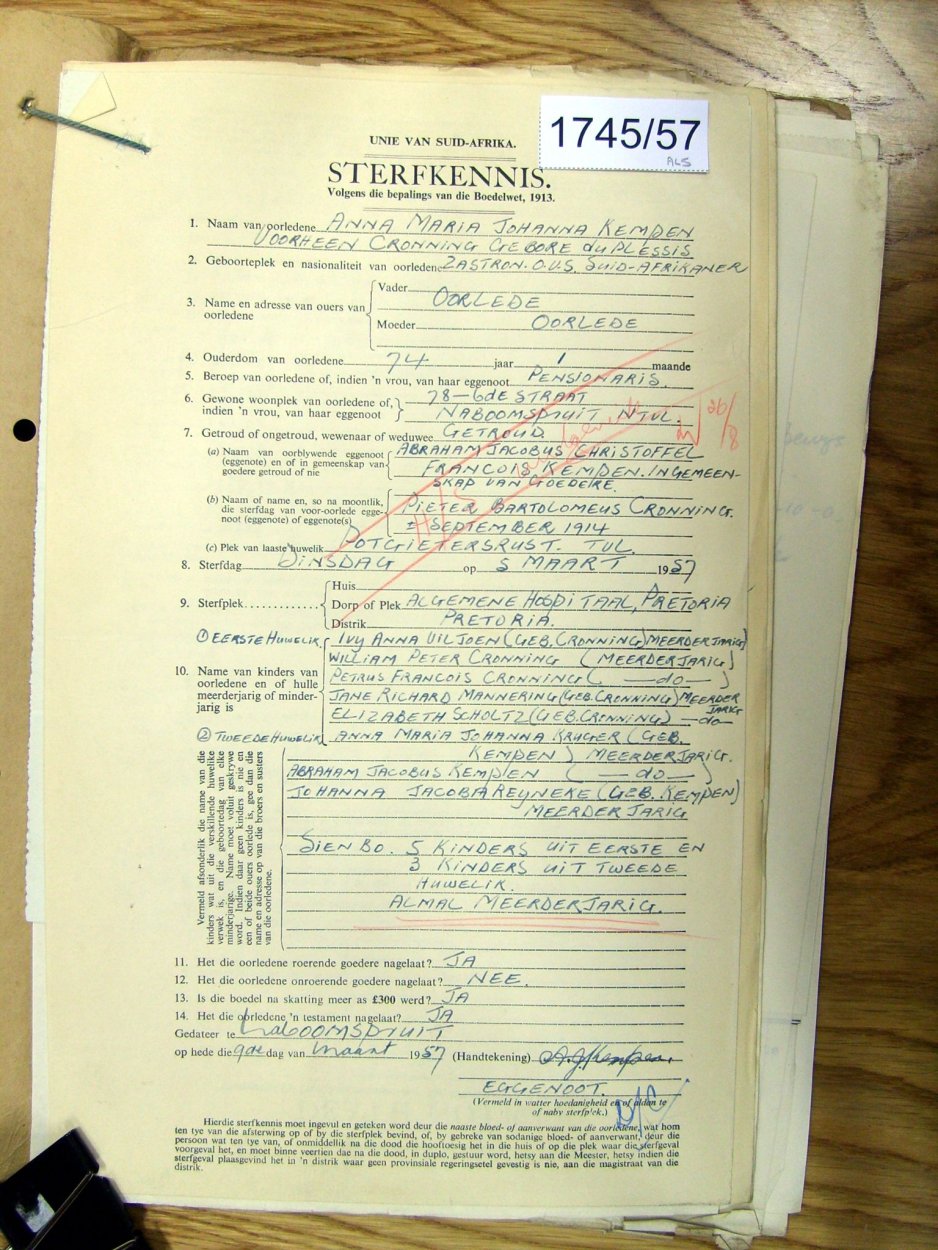 1745/57
ALS
UNIE VAN SUID-AFRIKA.
STERFKENNIS.
Volgens die bepalings van die Boedelwet, 1913.
1. Naam van oorledene ANNA MARIA JOHANNA KEMPEN
VOORHEEN CRONNING GEBORE du PLESSIS
2. Geboorteplek en nasionaliteit van oorledene ZASTRON. O.V.S. SUID-AFRIKANER
3. Name en adresse van ouers van oorledene
Vader OORLEDE
Moeder OORLEDE
4. Ouderdom van oorledene 74 jaar 1 maande
5. Beroep van oorledene of, indien 'n vrou, van haar eggenoot PENSIONARIS.
6. Gewone woonplek van oorledene of, 78-6DE STRAAT
indien 'n vrou, van haar eggenoot NABOOMSPRUIT NTVL.
26/8
7. Getroud of ongetroud, wewenaar of weduwee GETROUD.
(a) Naam van oorblywende eggenoot ABRAHAM JACOBUS CHRISTOFFEL
(eggenote) en of in gemeenskap van FRANCOIS KEMPEN. IN GEMEEN-
goedere getroud of nie SKAP VAN GOEDERE.
(b) Naam of name en, so na moontlik, PIETER BARTOLOMEUS CRONNING.
die sterfdag van voor-oorlede egge-
noot (eggenote) of eggenote(s) ± SEPTEMBER 1914
(c) Plek van laaste huwelik POTGIETERSRUST. TVL.
8. Sterfdag DINSDAG op 5 MAART 1957
9. Sterfplek
Huis
Dorp of Plek ALGEMENE HOSPITAAL, PRETORIA
Distrik PRETORIA.
① EERSTE HUWELIK IVY ANNA VILJOEN (GEB. CRONNING) MEERDERJARIG)
WILLIAM PETER CRONNING (MEERDERJARIG)
10. Name van kinders van PETRUS FRANCOIS CRONNING ( — do — )
oorledene en of hulle JANE RICHARD MANNERING (GEB. CRONNING) MEERDER
meerderjarig of minder- JARIG
jarig is ELIZABETH SCHOLTZ (GEB. CRONNING) — do —
② TWEEDE HUWELIK ANNA MARIA JOHANNA KRUGER (GEB.
KEMPEN) MEERDERJARIG.
ABRAHAM JACOBUS KEMPEN ( — do — )
JOHANNA JACOBA REYNEKE (GEB. KEMPEN)
MEERDERJARIG
Vermeld afsonderlik die name van die
kinders wat uit die verskillende huwelike
verwek is, en die geboortedag van elke
minderjarige. Name moet voluit geskrywe
word. Indien daar geen kinders is nie en
een of beide ouers oorlede is, gee dan die
name en adresse op van die broers en susters
van die oorledene.
SIEN BO. 5 KINDERS UIT EERSTE EN
3 KINDERS UIT TWEEDE
HUWELIK.
ALMAL MEERDERJARIG.
11. Het die oorledene roerende goedere nagelaat? JA
12. Het die oorledene onroerende goedere nagelaat? NEE.
13. Is die boedel na skatting meer as £300 werd? JA
14. Het die oorledene 'n testament nagelaat? JA
Gedateer te NABOOMSPRUIT
op hede die 9de dag van Maart 1957 (Handtekening) A.J. Kempen.
EGGENOOT.
(Vermeld in watter hoedanigheid en of aldan te
of naby sterfplek.)
Hierdie sterfkennis moet ingevul en geteken word deur die naaste bloed- of aanverwant van die oorledene, wat hom
ten tye van die afsterwing op of by die sterfplek bevind, of, by gebreke van sodanige bloed- of aanverwant, deur die
persoon wat ten tye van, of onmiddellik na die dood die hooftoesig het in die huis of op die plek waar die sterfgeval
voorgeval het, en moet binne veertien dae na die dood, in duplo, gestuur word, hetsy aan die Meester, hetsy indien die
sterfgeval plaasgevind het in 'n distrik waar geen provinsiale regeringsetel gevestig is nie, aan die magistraat van die
distrik.